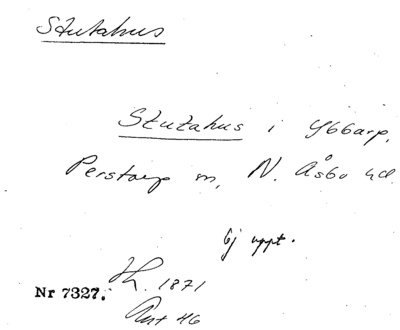 Stutahus
Stutahus i Ybbarp,
Perstorp sn, N. Åsbo hd.
Ej uppt.
Nr 7327. 1871
46